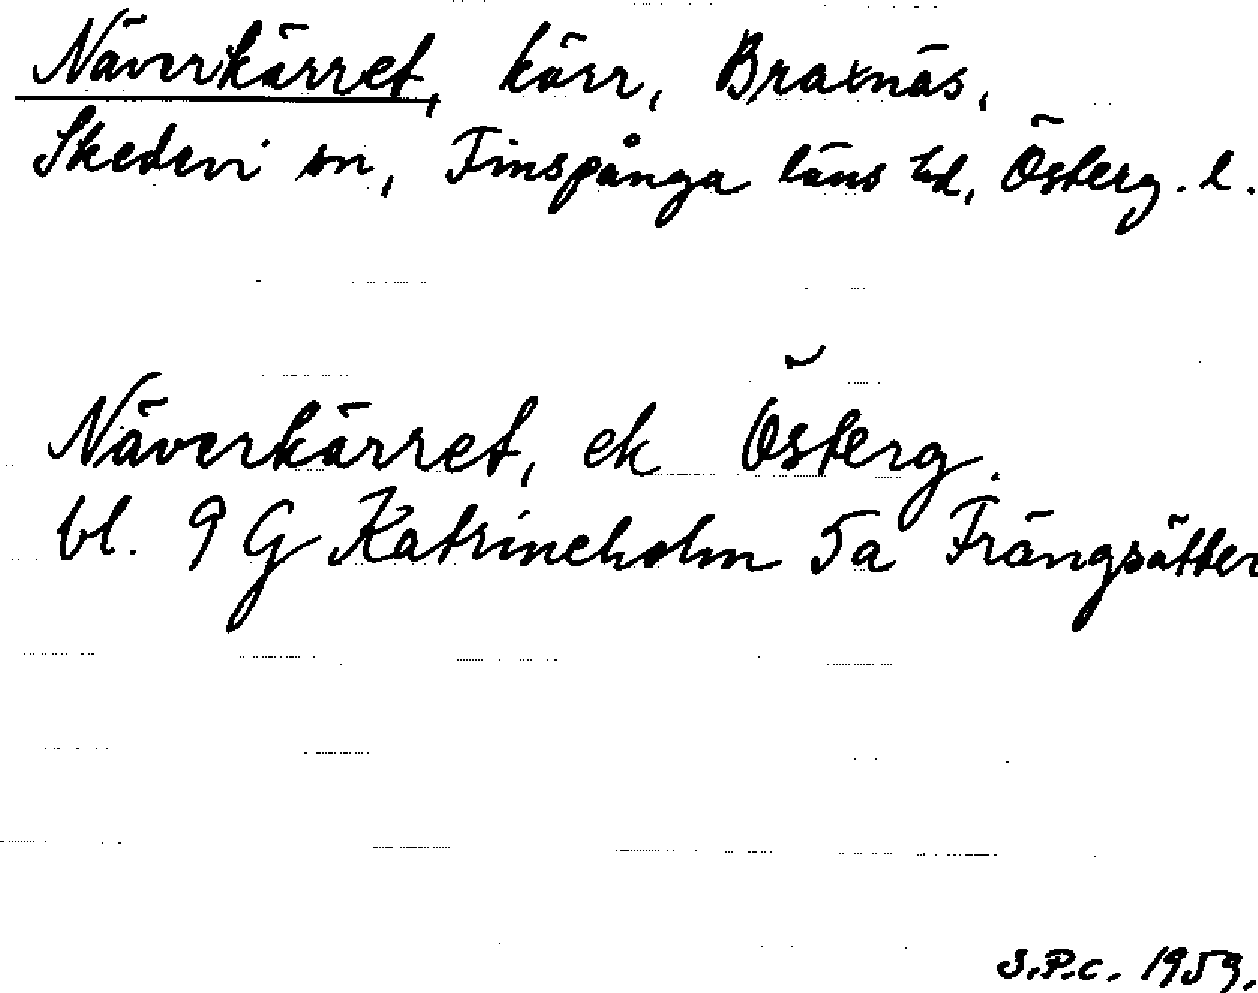 Näverkärret, kärr, Braxnäs,
Skedevi sn, Finspånga läns hd, Österg. l.
Näverkärret, ek Österg.
bl. 9 G Katrineholm 5a Frängsätter
S.P.C. 1959.